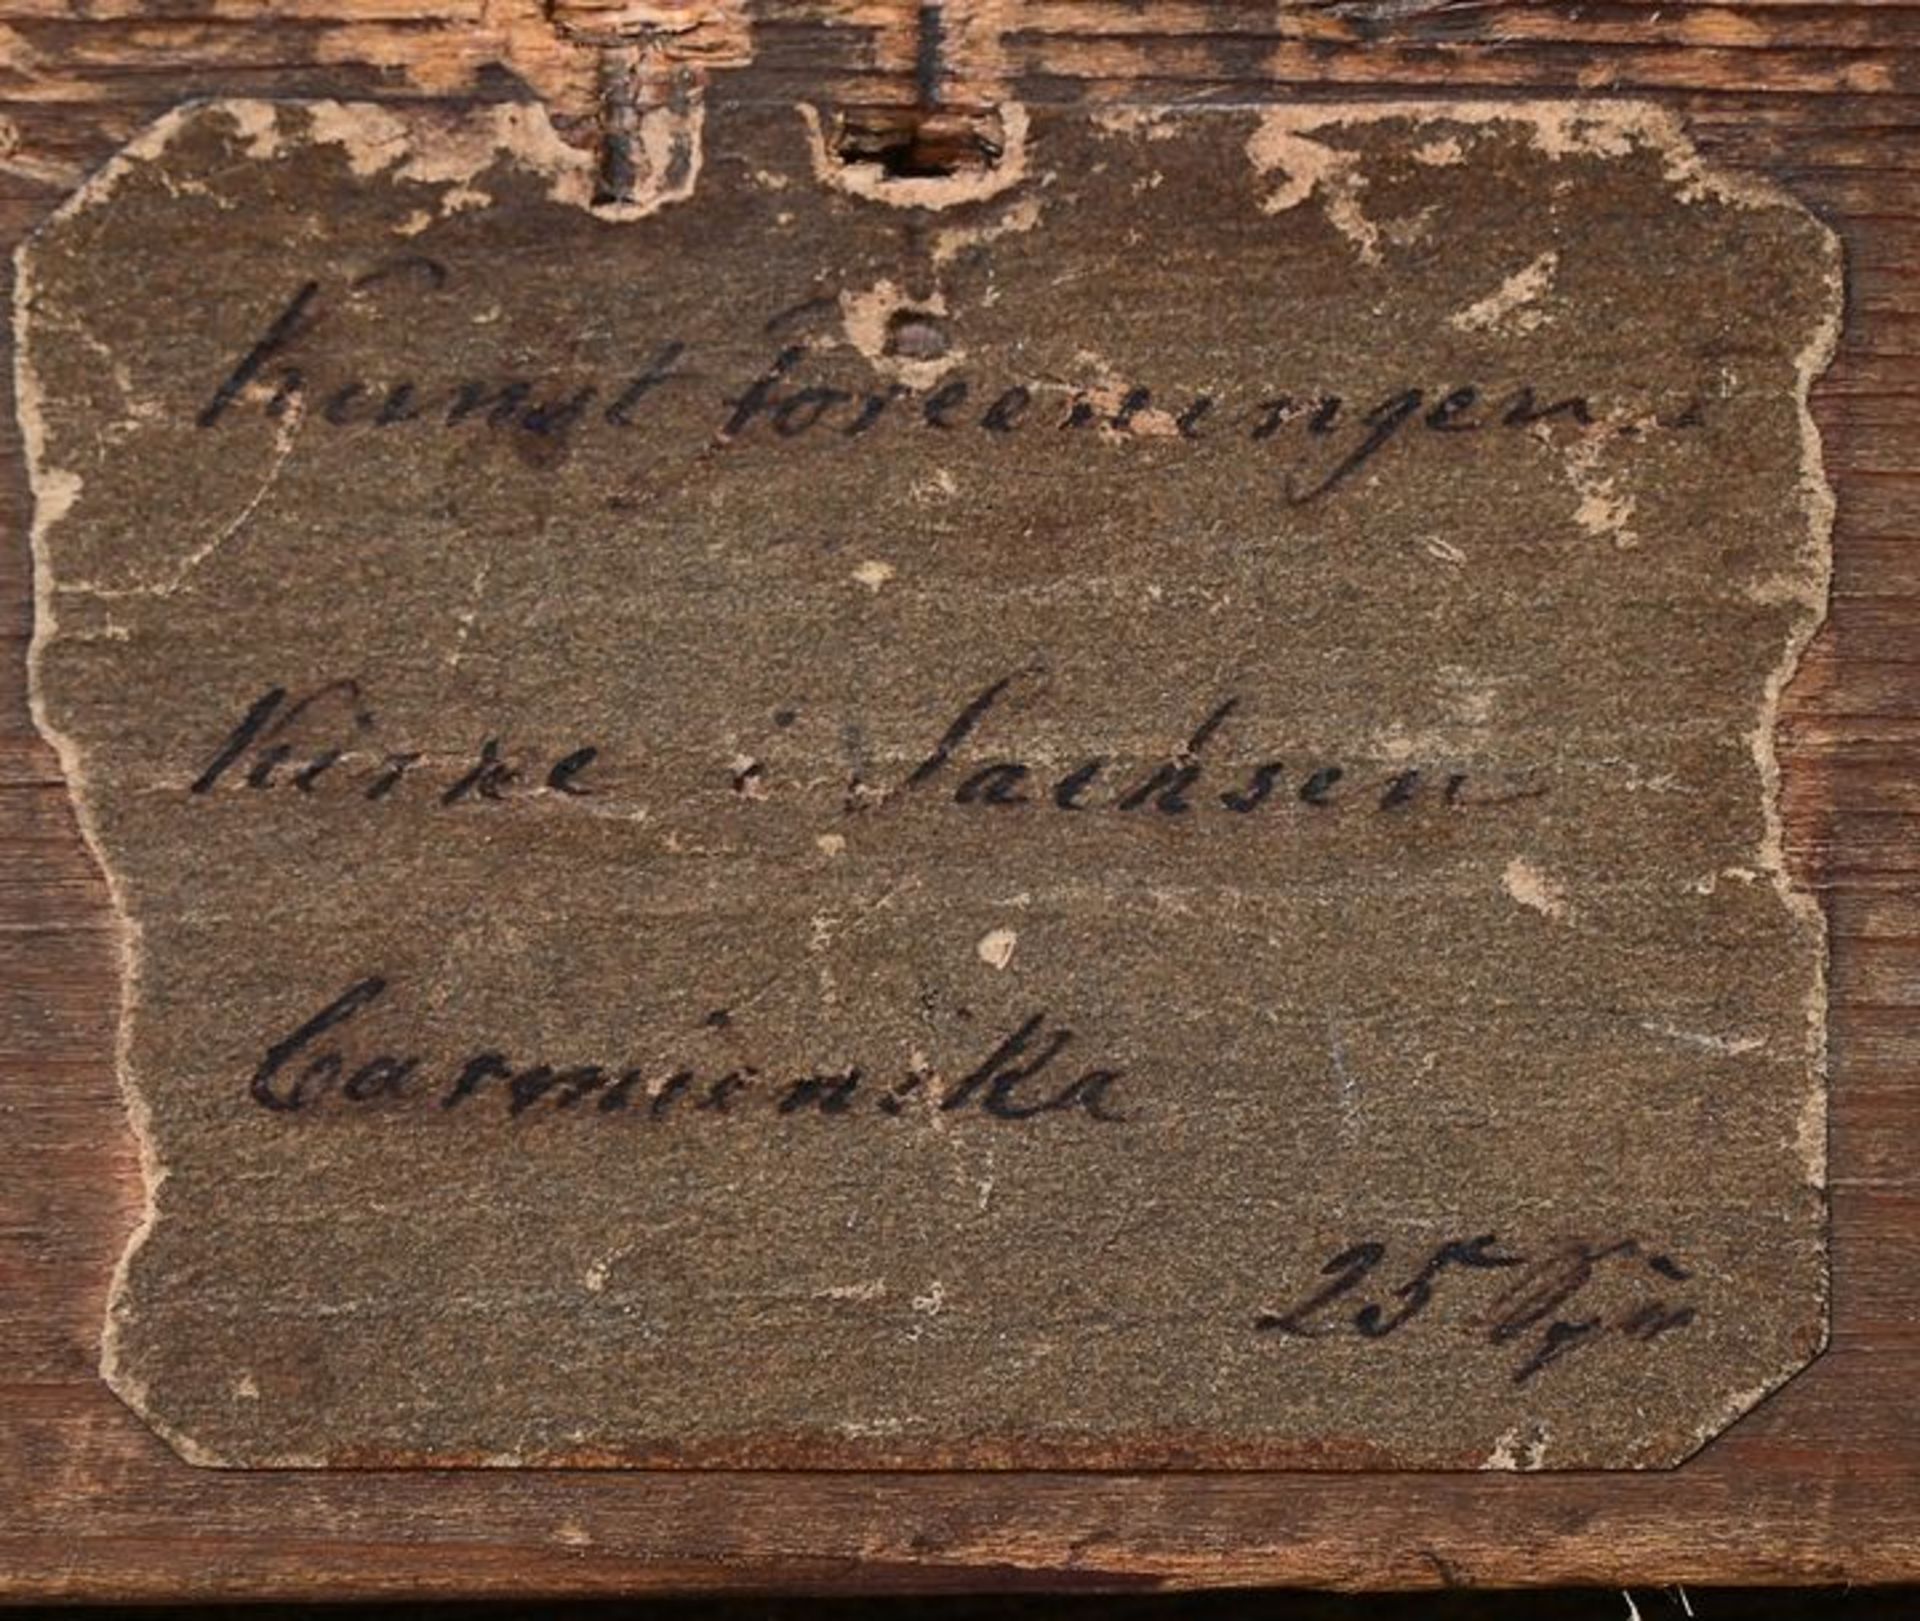 Kunstforeeningen
Kirke i Sachsen
Carmienike
25